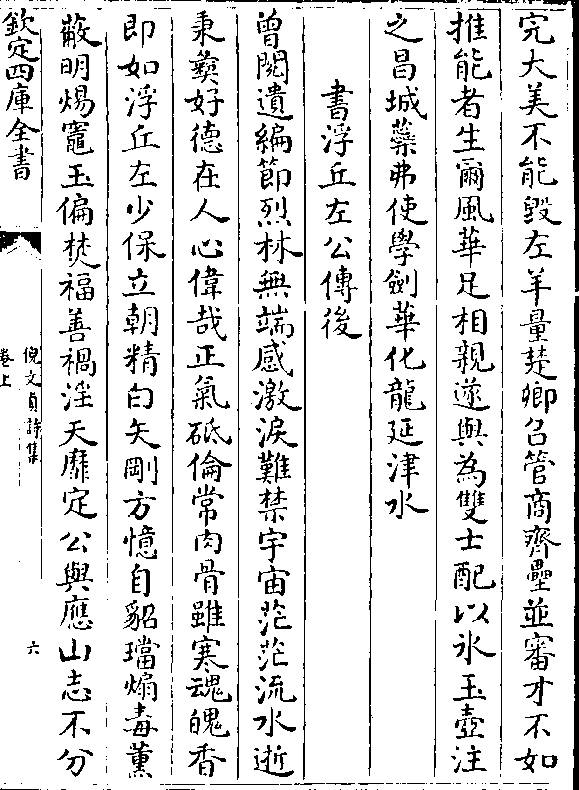 完大美不能毀左羊量楚卿召管商齊壘並審才不如
推能者生爾風華足相親遂與為雙士配以氷玉壺注
之昌城藥弗使學劍華化龍延津水
書浮丘左公傳後
曾閱遺編節烈林無端感激淚難禁宇宙茫茫流水逝
秉彝好德在人心偉哉正氣砥倫常肉骨雖寒魂魄香
即如浮丘左少保立朝精白矢剛方憶自貂璫煽毒薰
蔽明煬竈玉偏焚福善禍淫天靡定公與應山志不分
欽定四庫全書
倪文貞詩集
卷上
六